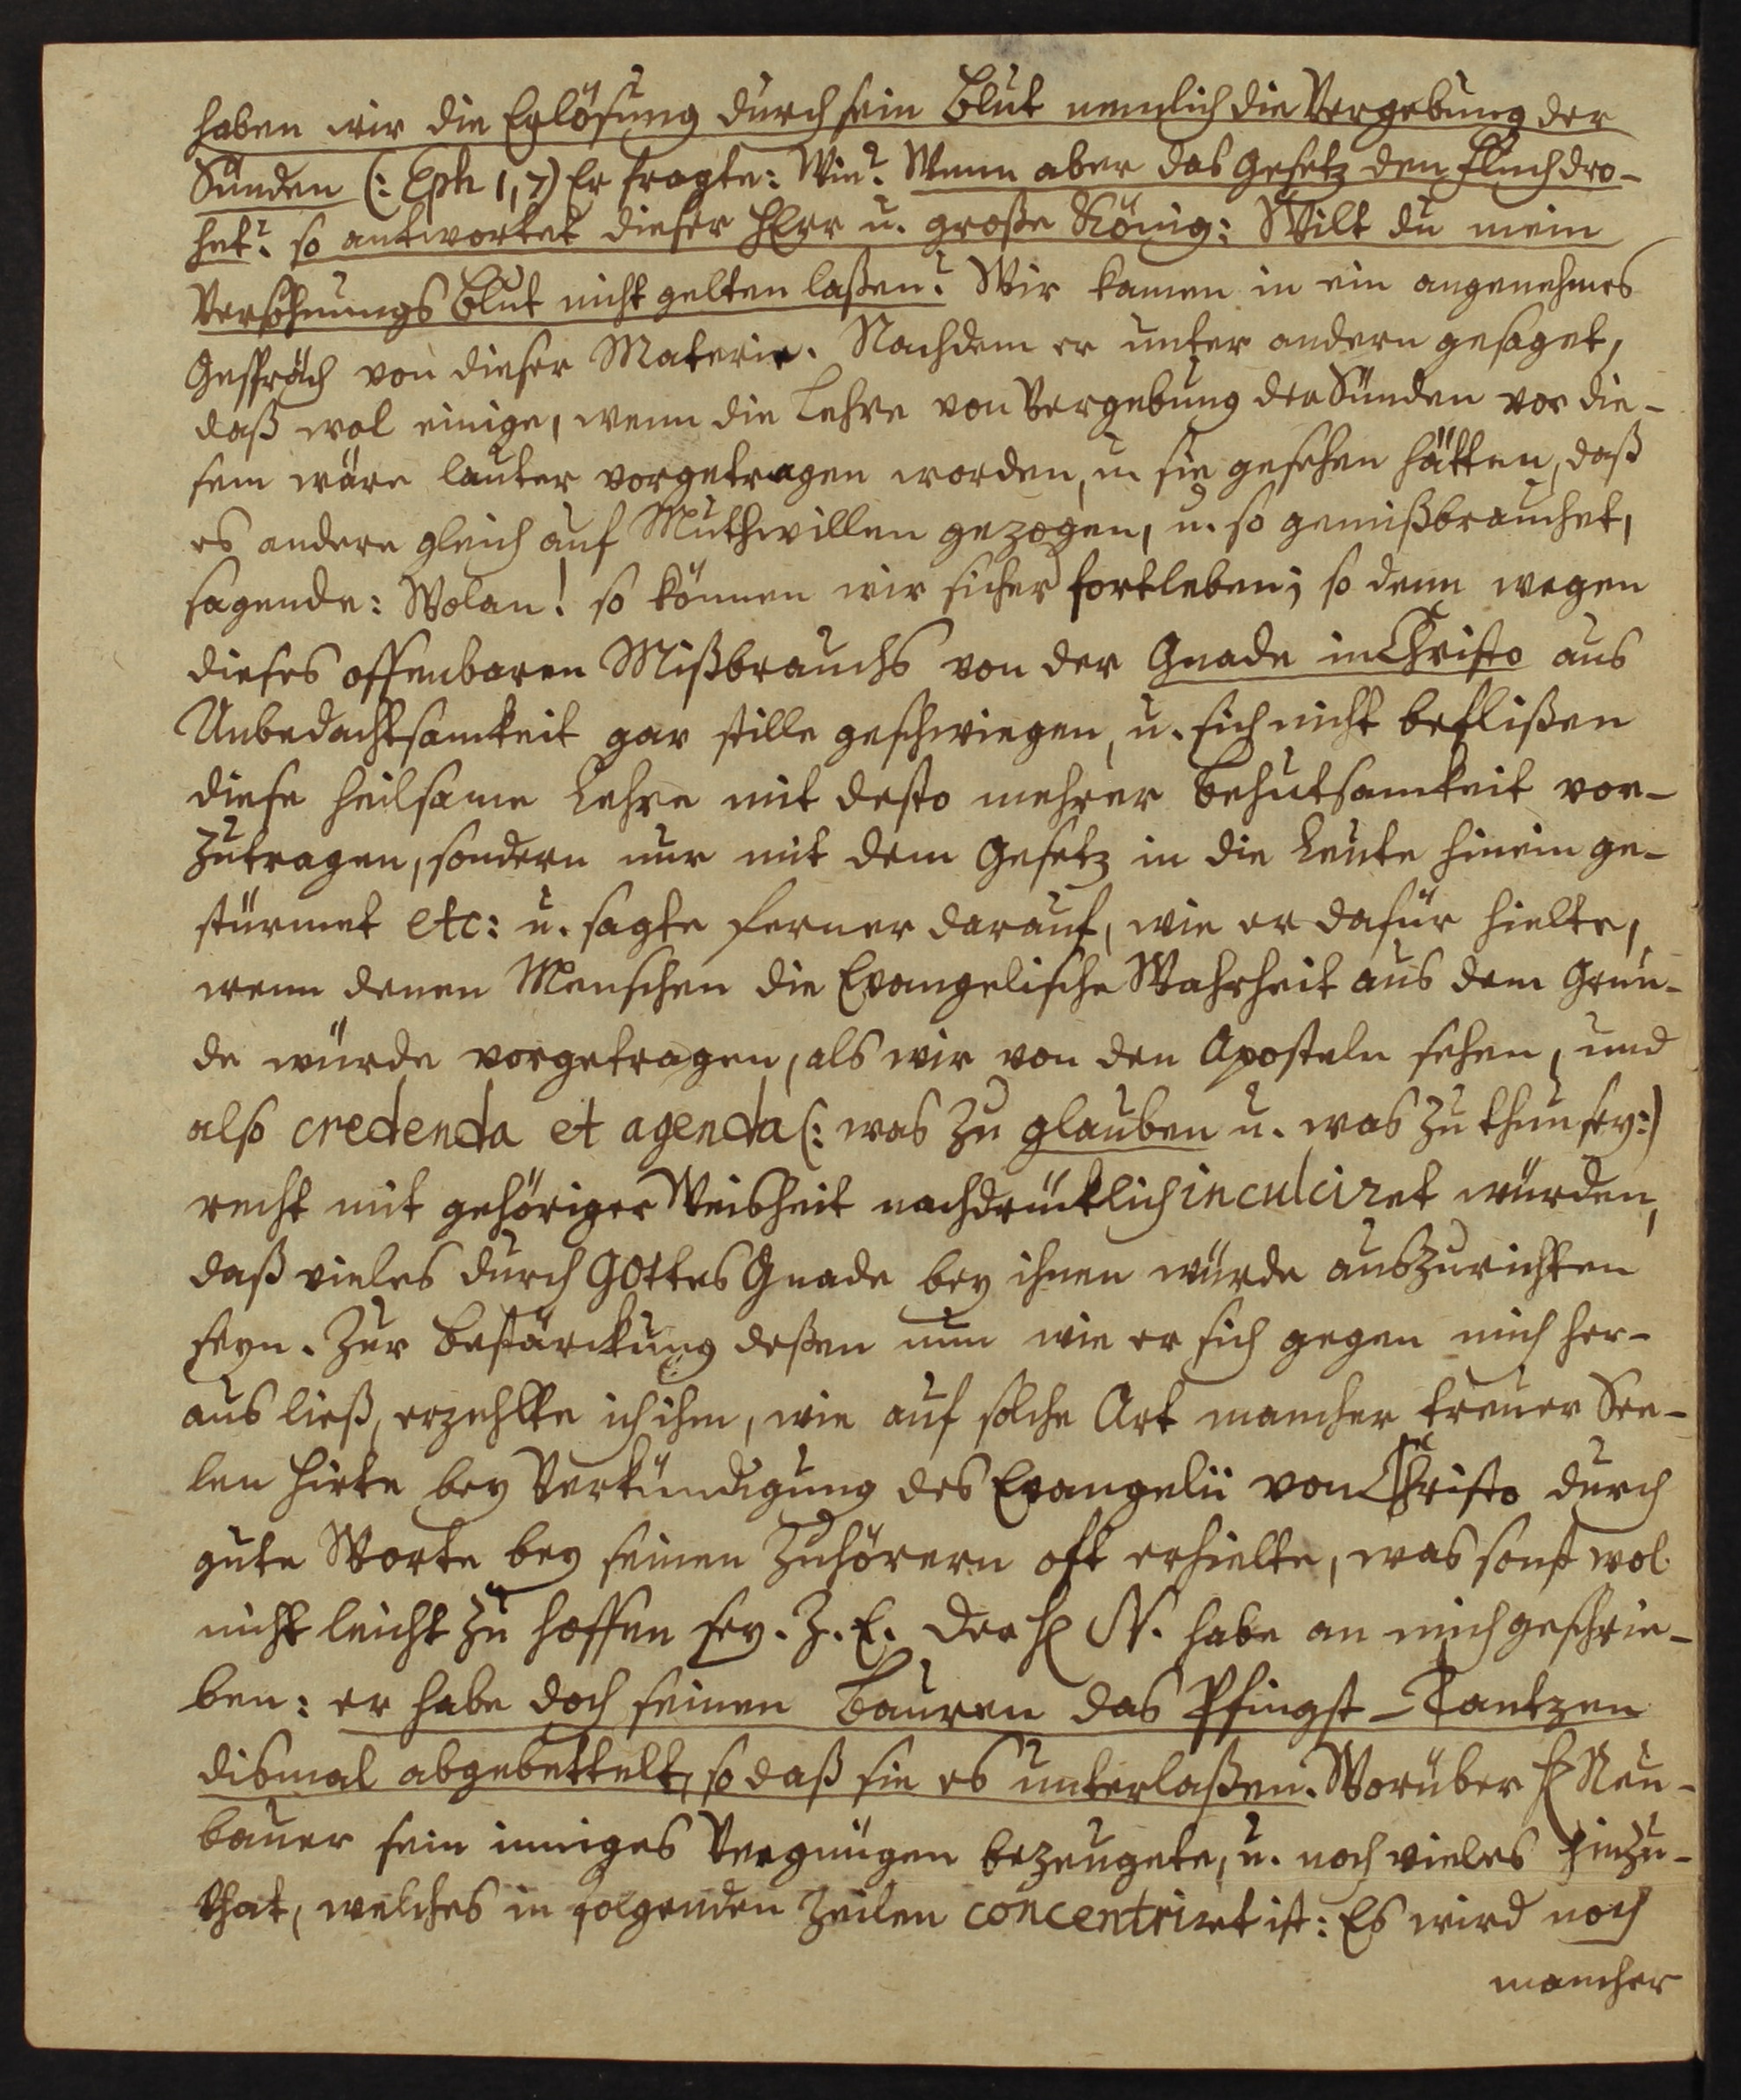 haben wir die Erlösung durch sein Blut nemlich die Vergebung der
Sünden (: Eph 1, 7) Er fragte: Wie? Wenn aber das Gesetz den Fluch dro-
het? so antwortet dieser HErr u. große König: Wilt du mein
Versöhnungs Blut nicht gelten laßen? Wir kamen in ein angenehmes
Gespräch von dieser Materie. Nachdem er unter andern gesaget,
daß wol einige, wenn die Lehre von Vergebung der Sünden vor die-
sem wäre lauter vorgetragen worden, u sie gesehen hätten, daß
es andere gleich auf Muthwillen gezogen, u. so gemißbrauchet,
sagende: Wolan! so können wir sicher fortleben; so denn wegen
dieses offenbaren Mißbrauchs von der Gnade in Christo aus
Unbedachtsamkeit gar stille geschwiegen, u. sich nicht beflißen
diese heilsame Lehre mit desto mehrer Behutsamkeit vor-
zutragen, sondern nur mit dem Gesetz in die Leute hinein ge-
stürmet etc: u. sagte ferner darauf, wie er dafür hielte,
wenn denen Menschen die Evangelische Wahrheit aus dem Grun-
de würde vorgetragen, als wir von den Aposteln sehen, und
also credenda et agenda (: was zu glauben u. was zu thun sey:)
recht mit gehöriger Weisheit nachdrücklich inculciret würden,
daß vieles durch GOttes Gnade bey ihnen würde auszurichten
seyn. Zur Bestärckung deßen nun wie er sich gegen mich her-
aus ließ, erzehlte ich ihm, wie auf solche Art mancher treuer See-
len Hirte bey Verkündigung des Evangelii von Christo durch
gute Worte bey seinen Zuhörern oft erhielte, was sonst wol
nicht leicht zu hoffen sey. Z. E. der H N. habe an mich geschrie-
ben: er habe doch seinen Bauren das Pfingst-Tantzen
dismal abgebettelt, so daß sie es unterlaßen. Worüber H Neu-
bauer sein inniges Vergnügen bezeugete, u. noch vieles hinzu-
that, welches in folgenden Zeilen concentriret ist: Es wird noch
mancher